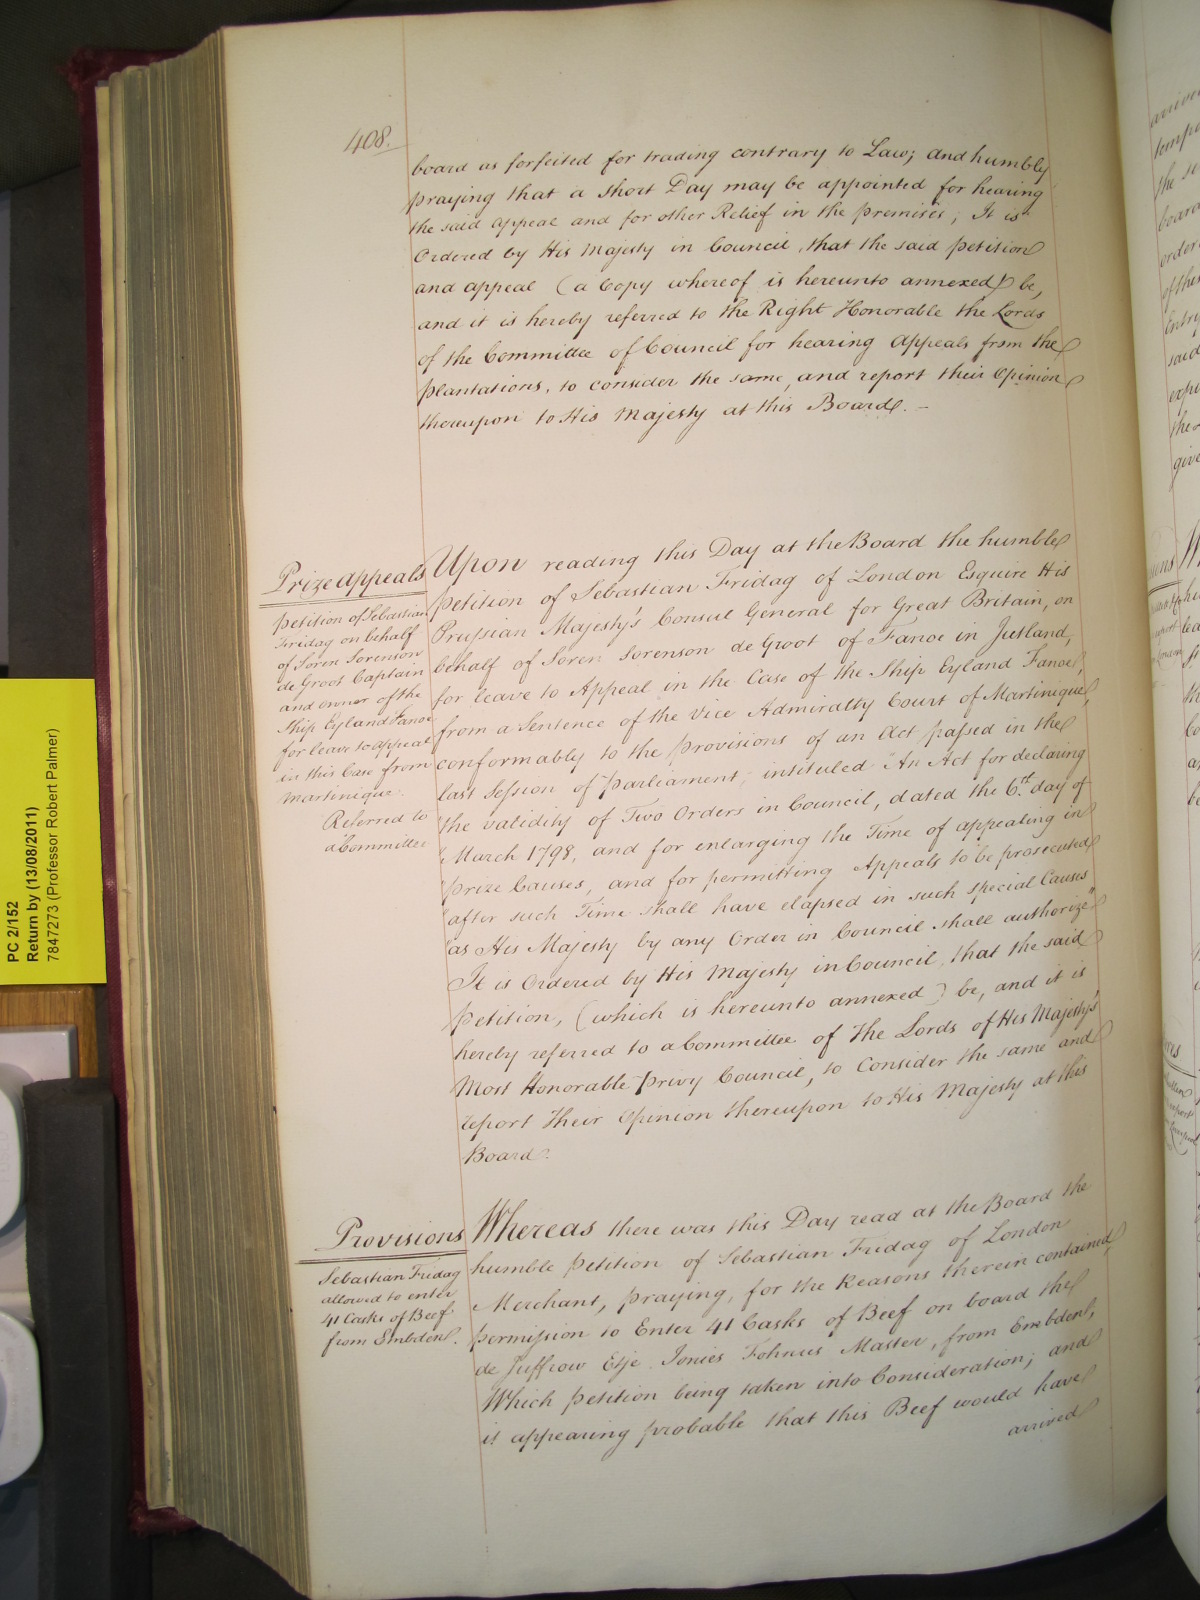 408.
board as forfeited for trading contrary to Law; and humbly
praying that a short Day may be appointed for hearing
the said appeal and for other Relief in the premises; It is
Ordered by His Majesty in Council, that the said petition
and appeal (a Copy whereof is hereunto annexed) be,
and it is hereby referred to the Right Honorable the Lords
of the Committee of Council for hearing Appeals from the
plantations, to consider the same, and report their Opinion
thereupon to His Majesty at this Board. –
Prize appeals
petition of Sebastian
Fridag on behalf
of Soren Sorenson
de Groot Captain
and owner of the
Ship Eyland Fanoe
for leave to appeal
in this Case from
Martinique.
Referred to
a Committee
Upon reading this Day at the Board the humble
petition of Sebastian Fridag of London Esquire His
Prussian Majesty's Consul General for Great Britain, on
behalf of Soren Sorenson de Groot of Fanoe in Jutland,
for leave to Appeal in the Case of the Ship Eyland Fanoe,
from a Sentence of the Vice Admiralty Court of Martinique,
conformably to the provisions of an Act passed in the
last Session of Parliament, intituled "An Act for declaring
"the validity of Two Orders in Council, dated the 6th day of
"March 1798, and for enlarging the Time of appealing in
"prize Causes, and for permitting Appeals to be prosecuted
"after such Time shall have elapsed in such special Causes
"as His Majesty by any Order in Council shall authorize"
It is Ordered by His Majesty in Council, that the said
petition, (which is hereunto annexed) be, and it is
hereby referred to a Committee of the Lords of His Majesty's
Most Honorable Privy Council, to Consider the same and
report Their Opinion thereupon to His Majesty at this
Board.
Provisions
Sebastian Fridag
allowed to enter
41 Casks of Beef
from Embden.
Whereas there was this Day read at the Board the
humble petition of Sebastian Fridag of London
Merchant, praying, for the Reasons therein contained
permission to Enter 41 Casks of Beef on board the
de Juffrow Etje Master, from Embden,
Which petition being taken into Consideration; and
it appearing probable that this Beef would have
arrived
PC 2/152
Return by (13/08/2011)
7847273 (Professor Robert Palmer)